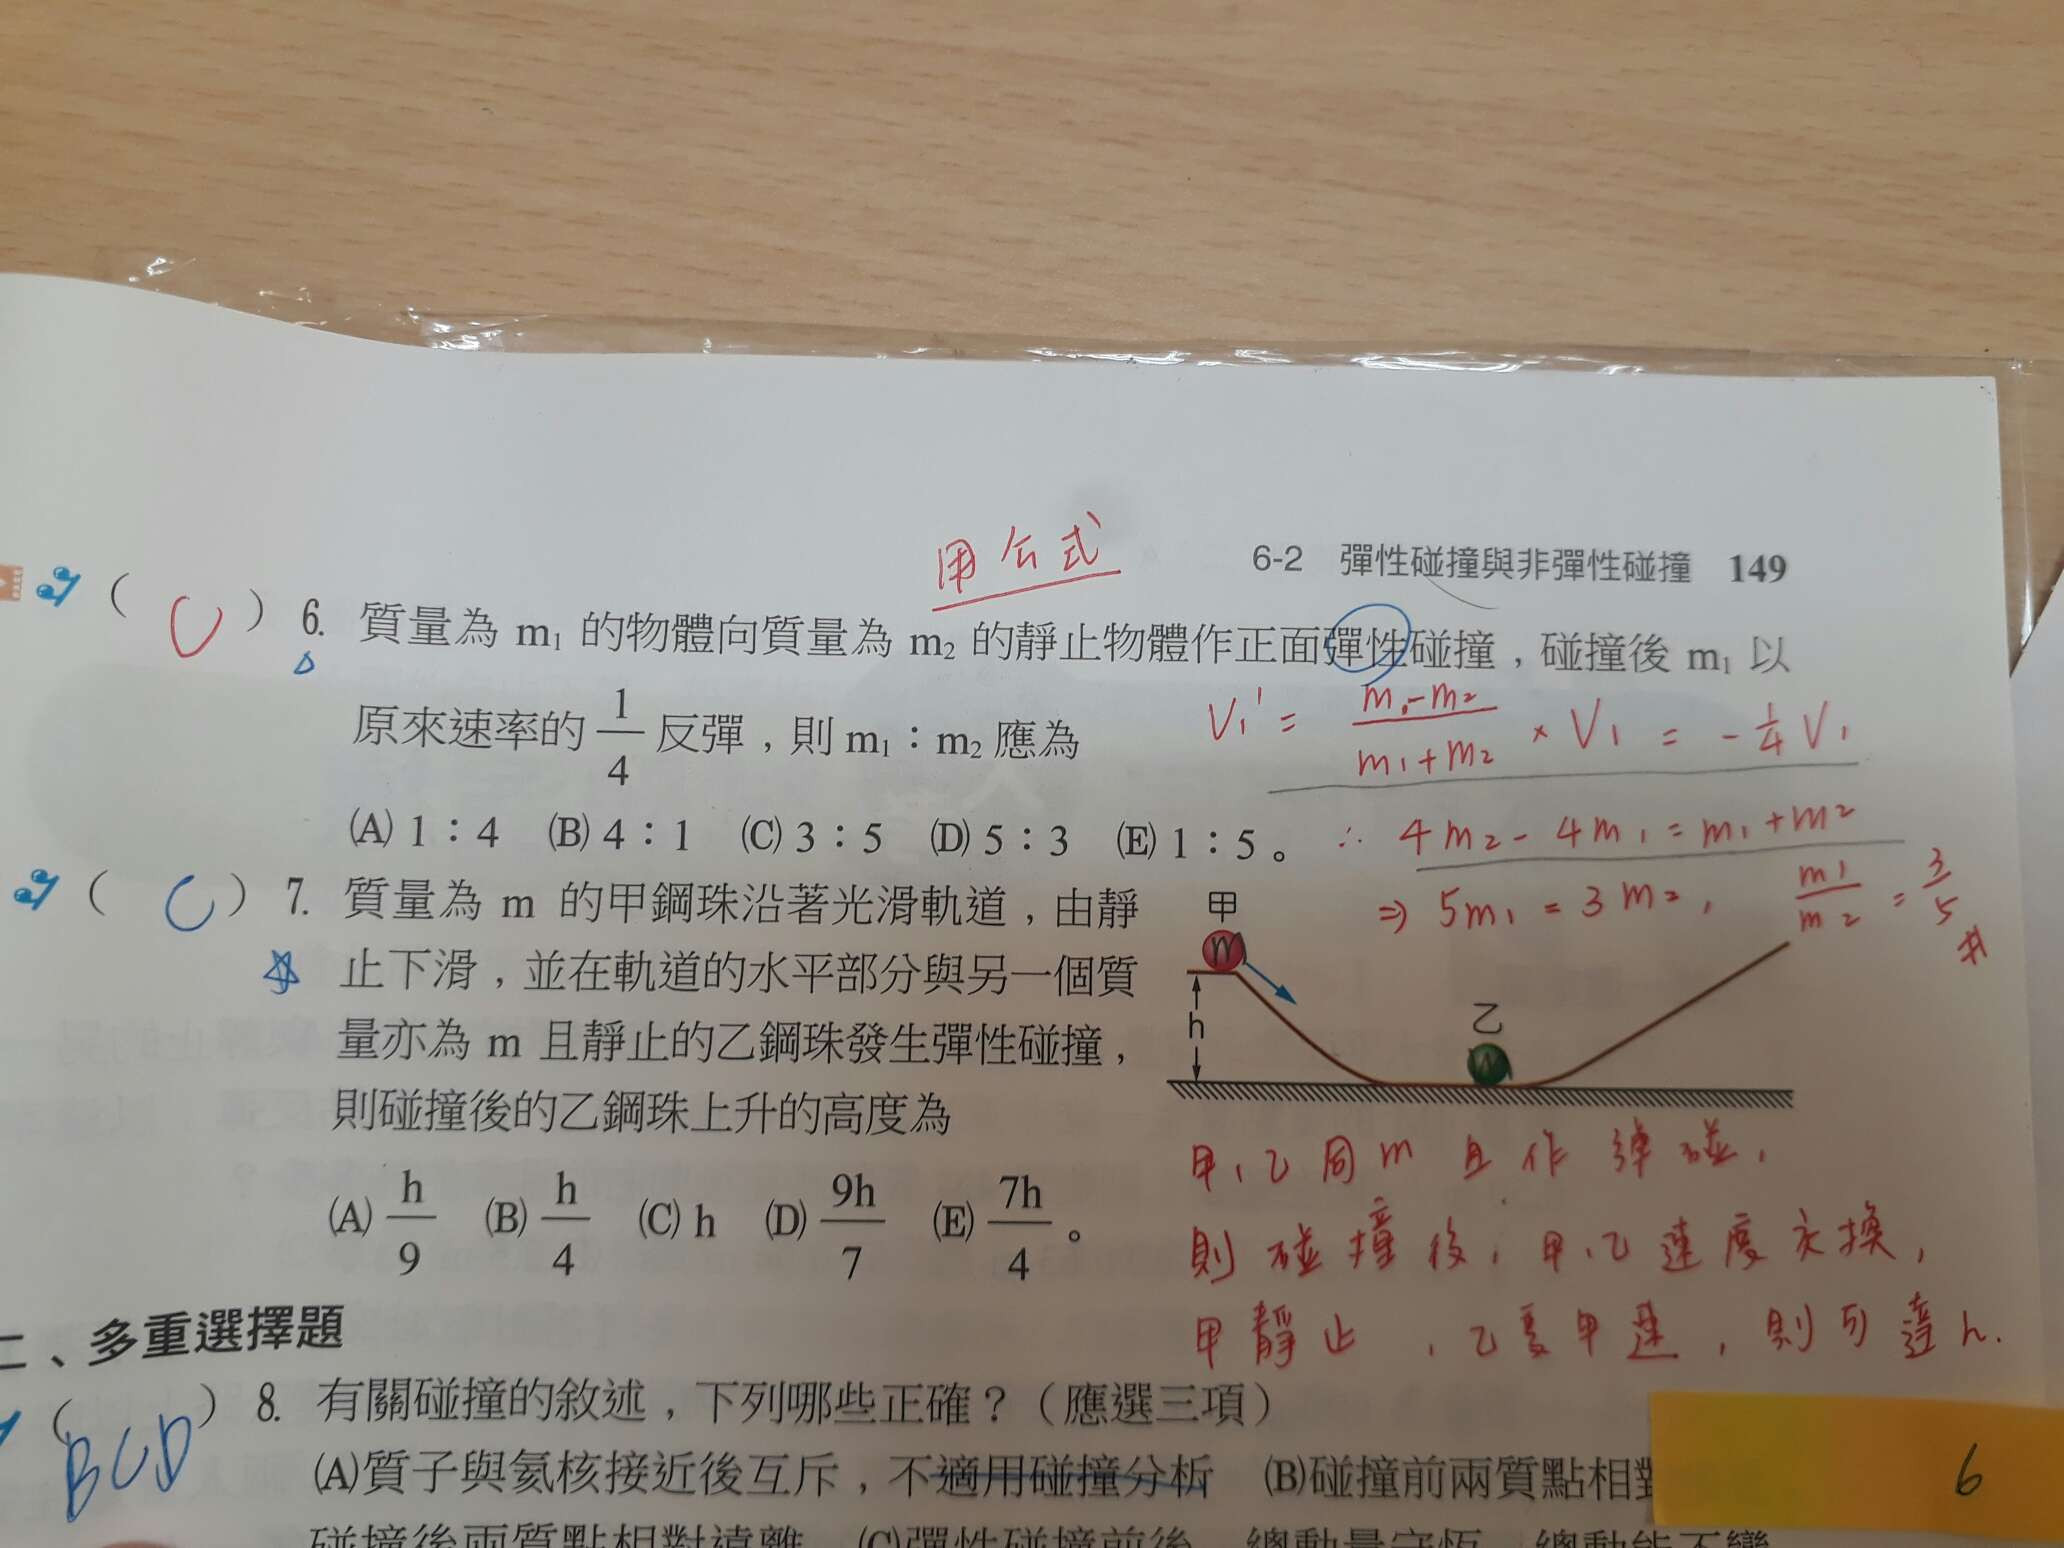 用公式
6-2 彈性碰撞與非彈性碰撞 149
( C ) 6. 質量為 m₁ 的物體向質量為 m₂ 的靜止物體作正面彈性碰撞，碰撞後 m₁ 以
原來速率的 1/4 反彈，則 m₁：m₂ 應為
V₁' = (m₁-m₂)/(m₁+m₂) × V₁ = -1/4 V₁
(A) 1：4 (B) 4：1 (C) 3：5 (D) 5：3 (E) 1：5。
∴ 4m₂ - 4m₁ = m₁+m₂
⇒ 5m₁ = 3m₂, m₁/m₂ = 3/5 #
( C ) 7. 質量為 m 的甲鋼珠沿著光滑軌道，由靜
止下滑，並在軌道的水平部分與另一個質
量亦為 m 且靜止的乙鋼珠發生彈性碰撞，
則碰撞後的乙鋼珠上升的高度為
(A) h/9 (B) h/4 (C) h (D) 9h/7 (E) 7h/4。
甲
m
h
乙
m
甲、乙同 m 且作彈碰，
則碰撞後，甲、乙速度交換，
甲靜止，乙變甲速，則可達 h.
二、多重選擇題
( BCD ) 8. 有關碰撞的敘述，下列哪些正確？（應選三項）
(A)質子與氦核接近後互斥，不適用碰撞分析 (B)碰撞前兩質點相對
6
碰撞後兩質點相對遠離 (C)彈性碰撞前後，總動量守恆，總動能不變